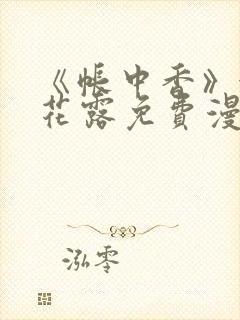 《帐中香》
花露免費漫
泓零